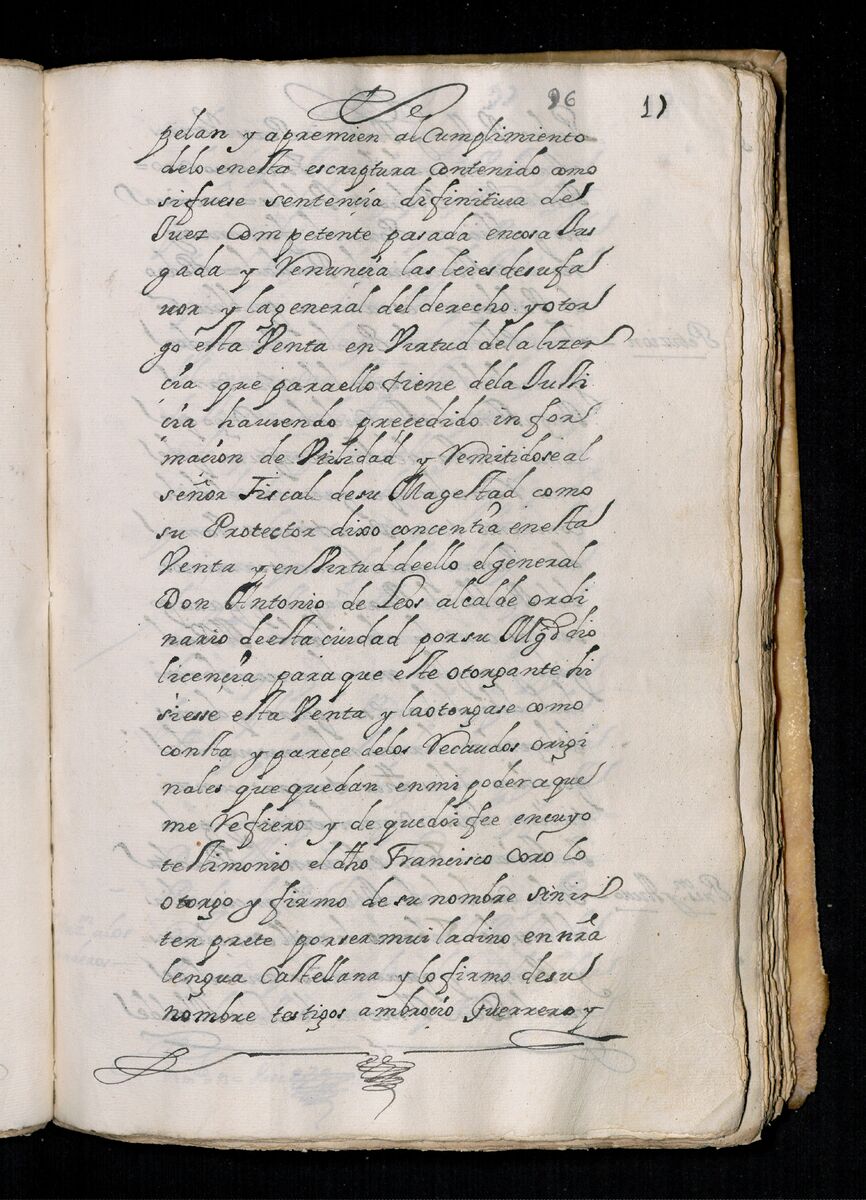 96 11
pelan y apremien al Cumplimiento
delo enesta escriptura contenido como
sifuese sentencia difinitiva de
Juez Competente pasada encosa Jus
gada y Renuncia las leies desufa
uor y lageneral del derecho yotor
go esta Venta en Virtud delalizen
cia que paraello tiene dela Justi
cia hauiendo precedido infor
macion de Vtilidad y Remitidose al
señor Fiscal desu Magestad como
su Protector dixo concentia enesta
Venta y en Virtud deello el general
Don Antonio de Leos alcalde ordi
nario deesta ciudad por su Mgd dio
licencia paraque este otorgante hi
siesse esta Venta y laotorgase como
consta y parece delos Recaudos origi
nales que quedan enmi poder aque
me Refiero y de quedoi fee encuyo
testimonio el dho Francisco coro lo
otorgo y firmo de su nombre sin in
terprete porser mui ladino en nra
lengua Castellana y lo firmo desu
nombre testigos ambrocio Guerrero y